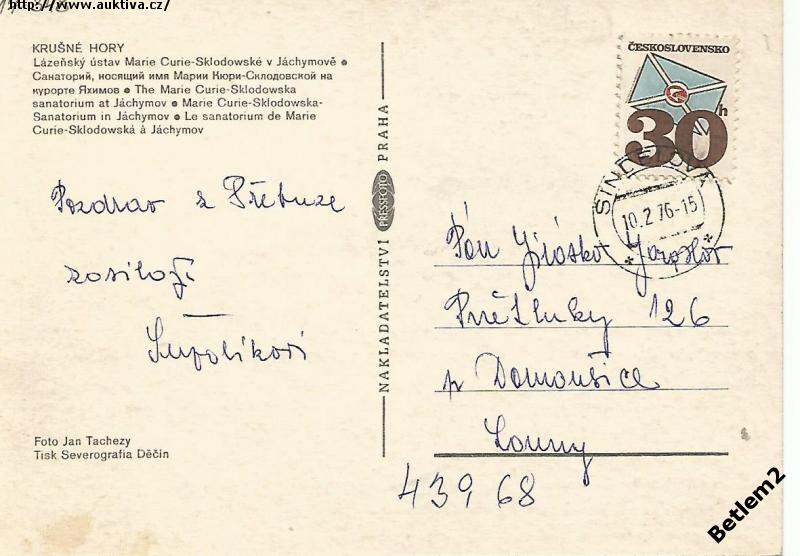 http://www.auktiva.cz/
KRUŠNÉ HORY
Lázeňský ústav Marie Curie-Sklodowské v Jáchymově ●
Санаторий, носящий имя Марии Кюри-Склодовской на
курорте Яхимов ● The Marie Curie-Sklodowska
sanatorium at Jáchymov ● Marie Curie-Sklodowska-
Sanatorium in Jáchymov ● Le sanatorium de Marie
Curie-Sklodowská à Jáchymov
Pozdrav z Přebuze
zasílají
Foto Jan Tachezy
Tisk Severografia Děčín
NAKLADATELSTVÍ PRESSFOTO PRAHA
ČESKOSLOVENSKO
30h
SINDELOVÁ
10.2.76-15
Pán Jirásko Jaroslav
Pnětluky 126
p Domoušice
Louny
439 68
Betlem2